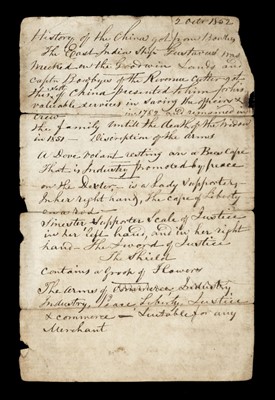 2 Octr 1862
History of the China got from Bombay
The East India Ship Gustavus was
wrecked on the Goodwin Sands and
Captn of the Revenue Cutter got
the set of China presented to him for his
valuable services in saving the specie &
crew in 1782 and remained in
the family untill the death of the Widow
in 1851 — Discription of the Arms
A Dove volant resting on a Bee Cape
That is Industry promoted by peace
on the Dexter — is a Lady Supporter,
In her right hand, the Cape of Liberty
on a rod
Sinester Supporter Scale of Justice
in her left hand, and in her right
hand — The Sword of Justice
The Shield
contains a Group of Flowers
The Arms of Commerce, Industry,
Industry, Peace, Liberty, Justice
& commerce — Suitable for any
Merchant